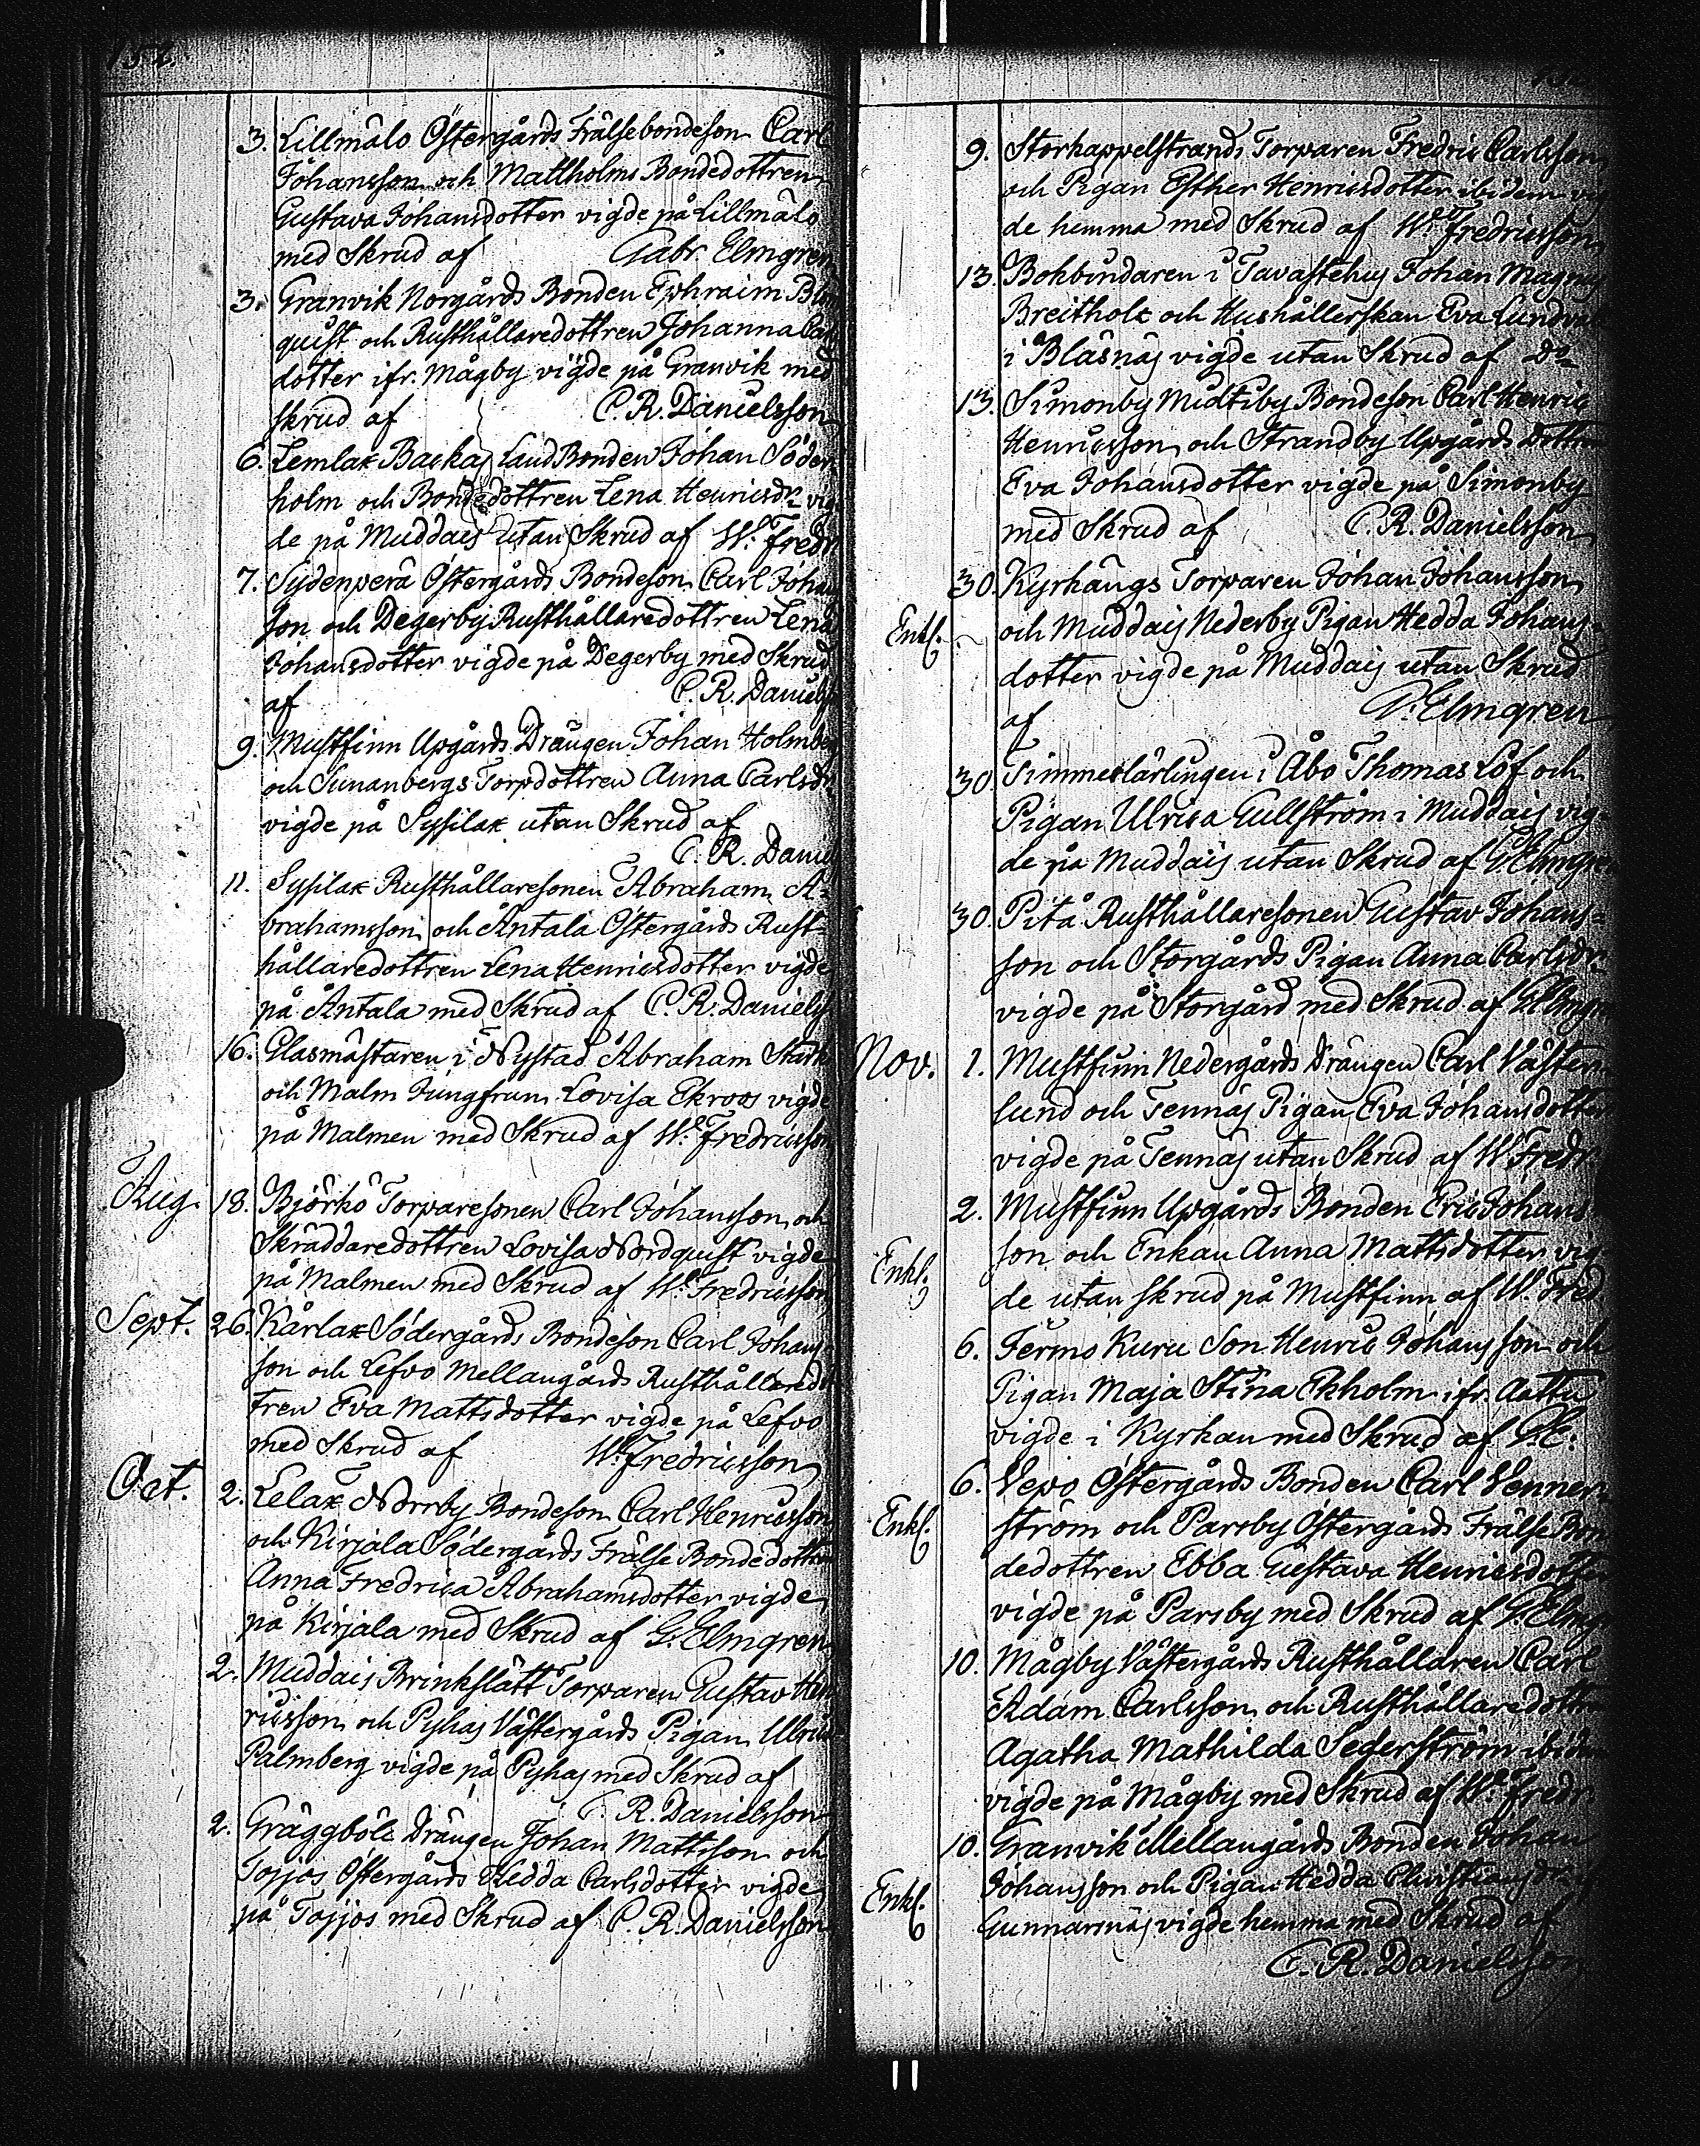 152.
3. Lillmälo Östergårds Frälsebondeson Carl
Johansson och Mattholms Bondedottren
Gustava Johansdotter vigde på Lillmälo
med Skrud af Gabr. Elmgren
3. Granvik Norgårds Bonden Ephraim
quist och Rusthållaredottren Johanna
dotter ifr. Mågby vigde på Granvik med
skrud af C. R. Danielsson
6. Lemlax Backas Landbonden Johan Söder
holm och Bondedottren Lena Henricsdr vig
de på Muddais utan Skrud af W. Fredr
7. Sydenperä Östergårds Bondeson Carl Johan
son och Degerby Rusthållaredottren Lena
Johansdotter vigde på Degerby med Skrud
af C. R. Daniels
9. Mustfinn Upgårds Drängen Johan Holmberg
och Sunanbergs Torpdottren Anna Carlsdr
vigde på Sysilax utan Skrud af
C. R. Daniel
11. Sysilax Rusthållaresonen Abraham A-
brahamsson och Antala Östergårds Rust-
hållaredottren Lena Henricsdotter vigde
på Antala med Skrud af C. R. Daniels
16. Glasmästaren i Nystad Abraham
och Malm Jungfrun Lovisa Ekroos vigde
på Malmen med Skrud af W. Fredricsson
Aug. 18. Björkö Torparesonen Carl Johansson och
Skräddaredottren Lovisa Nordquist vigde
på Malmen med Skrud af W. Fredricsson
Sept. 26. Kårlax Södergårds Bondeson Carl Johans-
son och Lefvo Mellangårds Rusthållaredot
tren Eva Mattsdotter vigde på Lefvo
med Skrud af W. Fredricsson
Oct. 2. Lelax Norrby Bondeson Carl Henricsson
och Kirjala Södergårds Frälse Bondedottren
Anna Fredrica Abrahamsdotter vigde
på Kirjala med Skrud af G. Elmgren
2. Muddais Brinkslätt Torparen Gustav Hen
ricsson och Pyhas Västergårds Pigan Ulrica
Palmberg vigde på Pyhas med Skrud af
C. R. Danielsson
2. Gräggböle Drängen Johan Mattsson och
Tojjos Östergårds Hedda Carlsdotter vigde
på Tojjos med Skrud af C. R. Danielsson
9. Storkappelstrands Torparen Fredric Carlsson
och Pigan Esther Henricsdotter ibidem vig
de hemma med Skrud af W. Fredricsson
13. Bokbindaren i Tavastehus Johan Magnus
Breitholz och Hushållerskan Eva
i Bläsnäs vigde utan Skrud af Do
13. Simonby Bondeson Carl Henric
Henricsson och Strandby Upgårds Dottren
Eva Johansdotter vigde på Simonby
med Skrud af C. R. Danielsson
30. Kyrkängs Torparen Johan Johansson
Enkl. och Muddais Nederby Pigan Hedda Johans-
dotter vigde på Muddais utan Skrud
af G. Elmgren
30. Timmerlärlingen i Åbo Thomas Löf och
Pigan Ulrica Gullström i Muddais vig
de på Muddais utan Skrud af G. Elmgren
30. Pitå Rusthållaresonen Gustav Johans-
son och Storgårds Pigan Anna Carlsdr
vigde på Storgård med Skrud af G. Elmgr
Nov. 1. Mustfinn Nedergårds Drängen Carl Väster-
lund och Tennäs Pigan Eva Johansdotter
vigde på Tennäs utan Skrud af W. Fredr
2. Mustfinn Upgårds Bonden Eric Johans
Enkl. son och Enkan Anna Mattsdotter vig
de utan skrud på Mustfinn af W. Fred
6. Fermo Kuru Son Henric Johansson och
Pigan Maja Stina Ekholm ifr. Attu
vigde i Kyrkan med Skrud af G. E.
6. Vepo Östergårds Bonden Carl Venner-
Enkl. ström och Parsby Östergårds Frälse Bon
dedottren Ebba Gustava Henricsdotter
vigde på Parsby med Skrud af G. Elmg
10. Mågby Västergårds Rusthållaren Carl
Adam Carlsson och Rusthållaredottren
Agatha Mathilda Sederström ibidem
vigde på Mågby med Skrud af W. Fredr.
10. Granvik Mellangårds Bonden Johan
Enkl. Johansson och Pigan Hedda Christiansdr
Gunnarsnäs vigde hemma med Skrud af
C. R. Danielsson